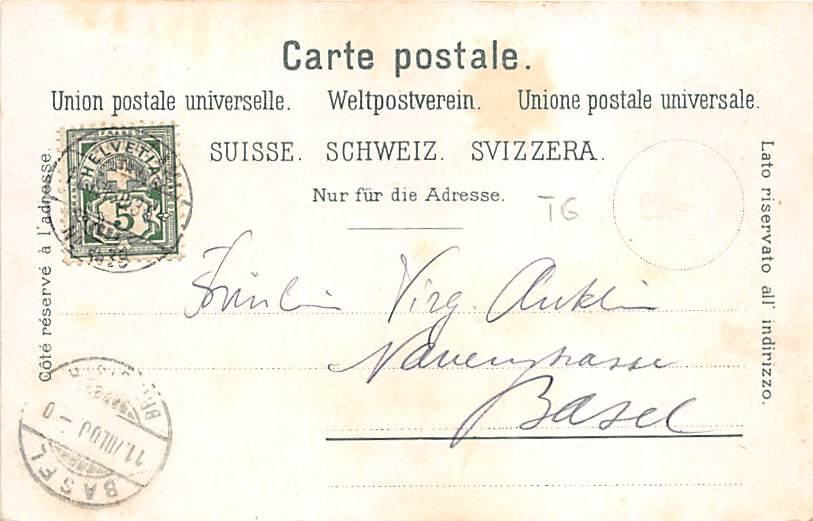 Carte postale.
Union postale universelle. Weltpostverein. Unione postale universale.
SUISSE. SCHWEIZ. SVIZZERA.
Nur für die Adresse.
TG
Côté réservé à l'adresse.
Lato riservato all' indirizzo.
HELVETIA
5
Fräulein Virg. Anklin
Nauenstrasse
Basel
BASEL
11.III.00.-0